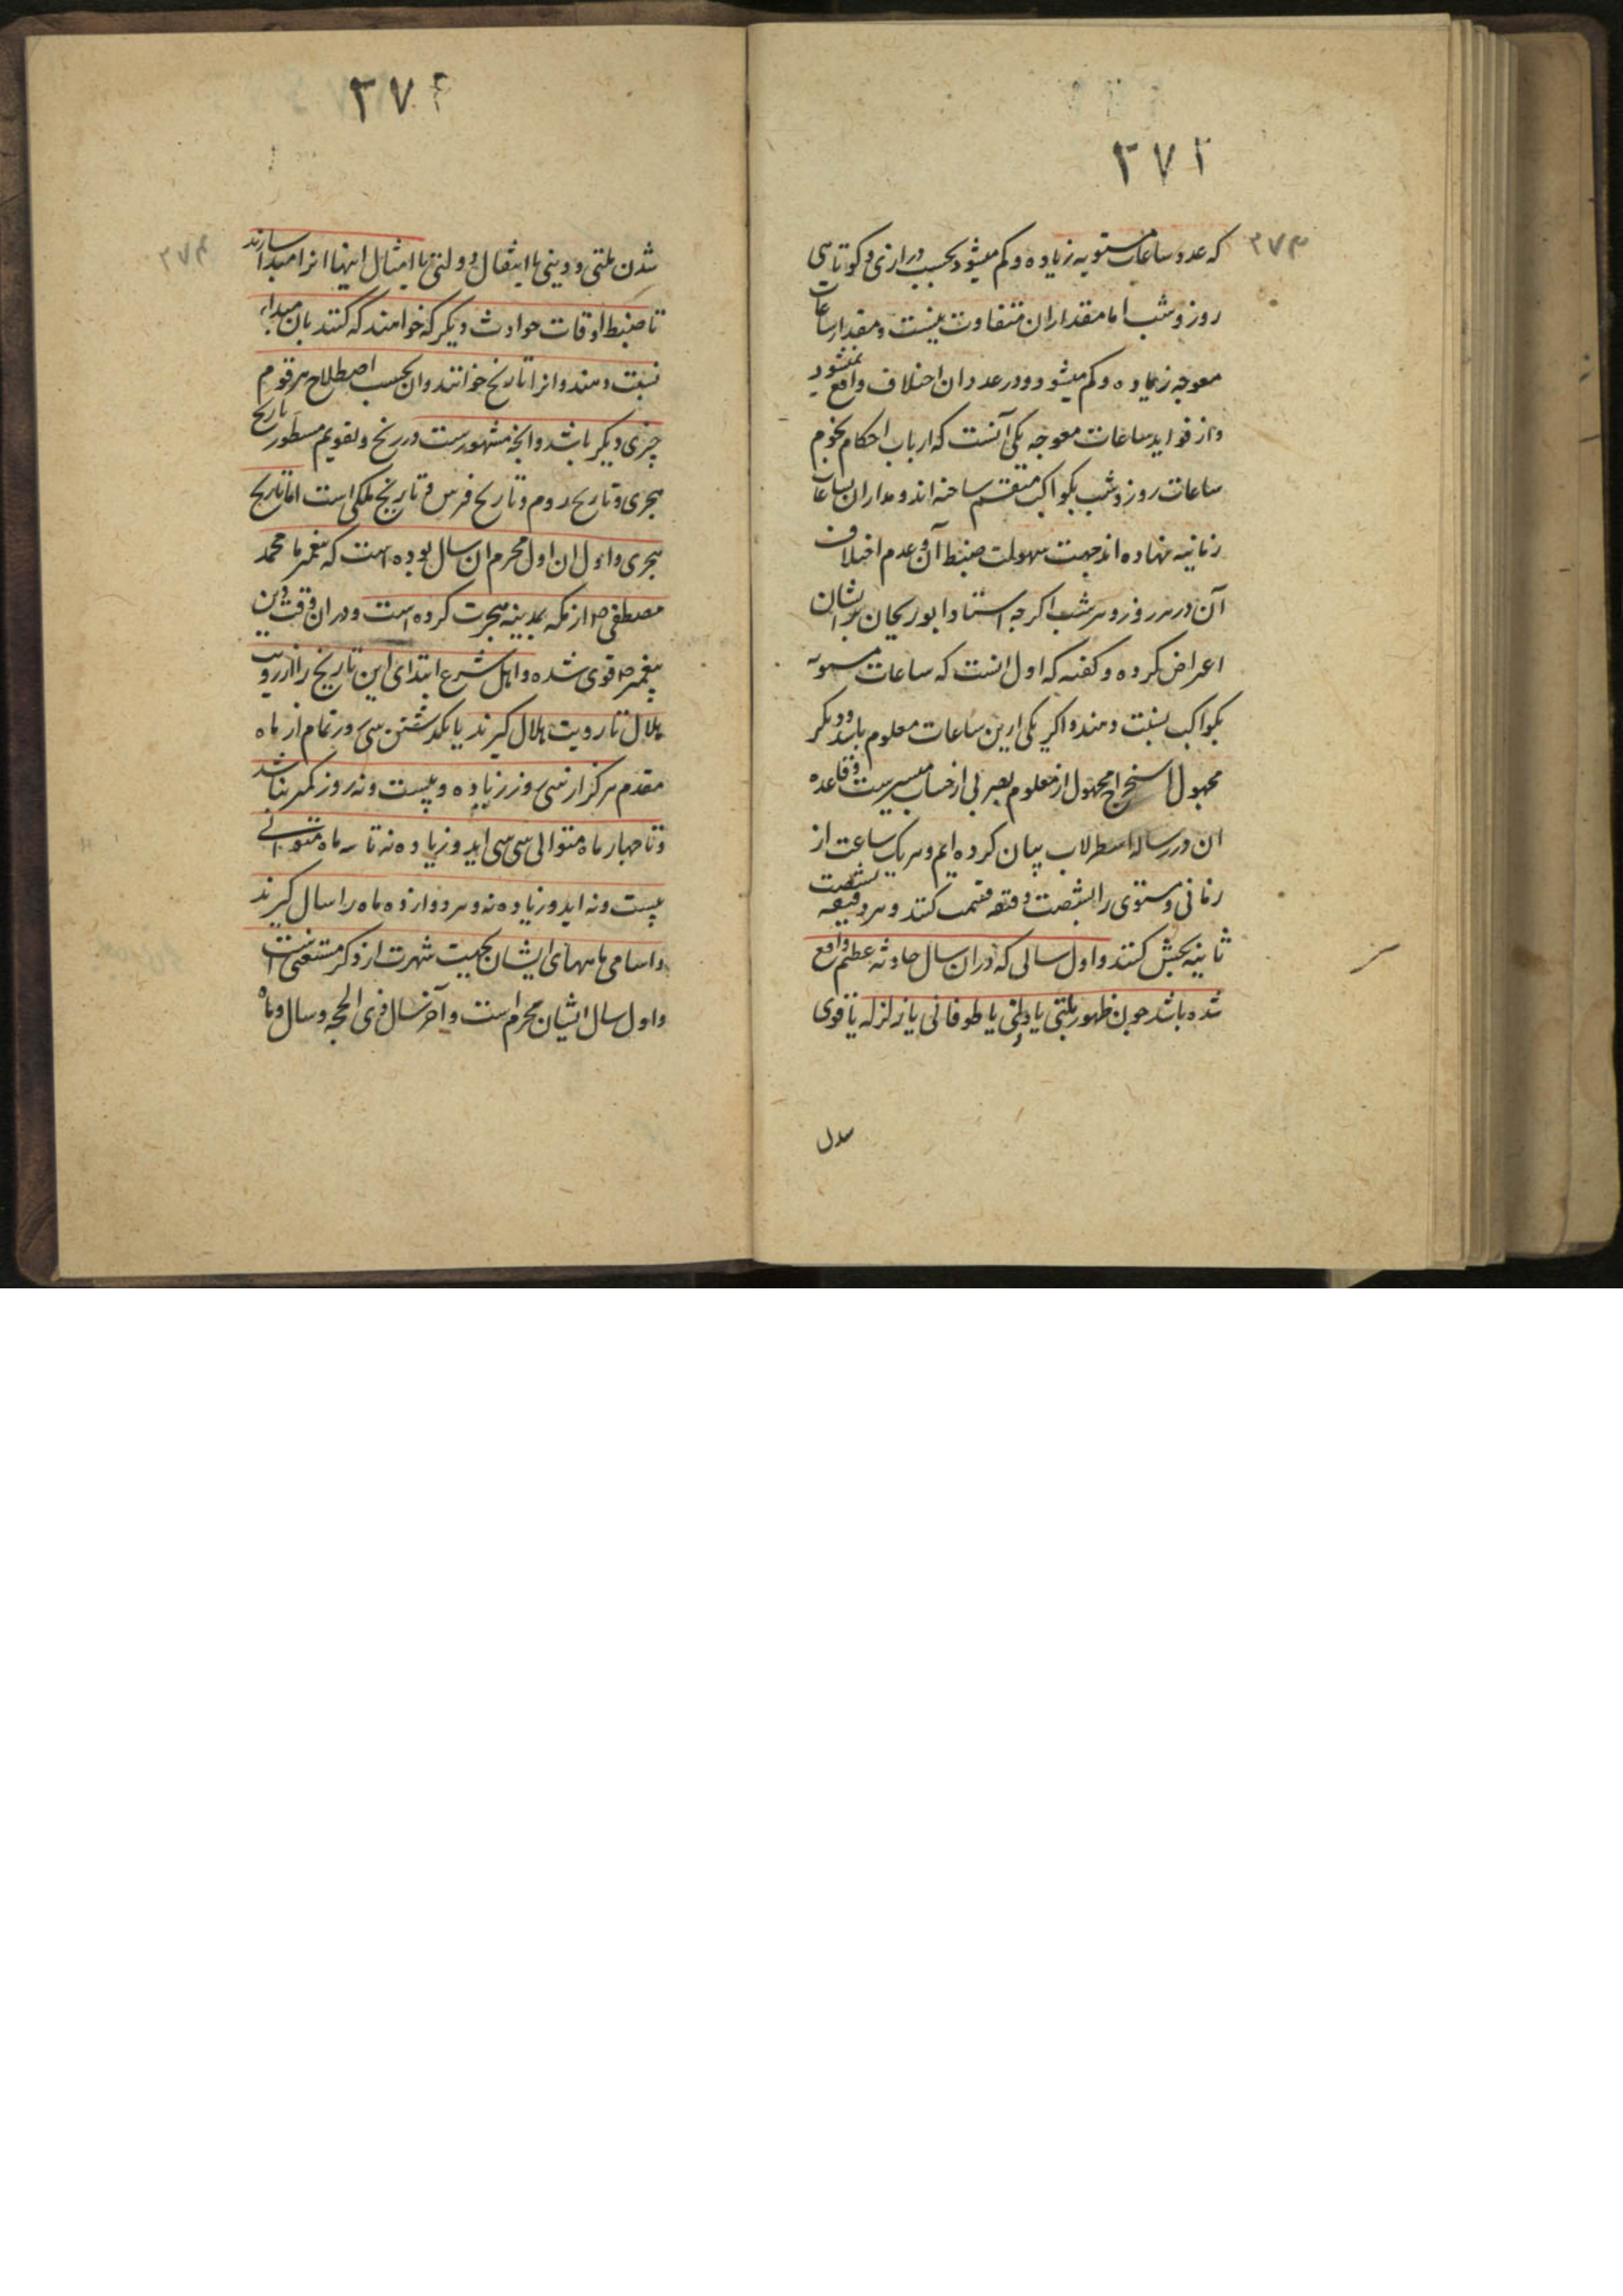 ۳۷۲
۳۷۳
که عدد ساعات مستویه زیاده و کم میشود بحسب درازی و کوتاهی
روز و شب اما مقدار ان متفاوت نیست و مقدار ساعات
معوجه زیاده و کم میشود و در عدد ان اختلاف واقع نمیشود
و از فواید ساعات معوجه یکی آنست که ارباب احکام نجوم
ساعات روز و شب بکواکب منقسم ساخته اند و مدار ان بساعات
زمانیه نهاده اند جهت سهولت ضبط آن و عدم اختلاف
آن در هر روز و هر شب اگرچه استاد ابو ریحان بر ایشان
اعتراض کرده و کفته که اول انست که ساعات مستویه
بکواکب نسبت دهند و اکر یکی ازین ساعات معلوم باشد و دیکر
مجهول استخراج مجهول از معلوم بضربی از حساب میسر است و قاعده
ان در رساله اسطرلاب بیان کرده ایم و هر یک ساعت از
زمانی و مستوی را بشصت دقیقه قسمت کنند و هر دقیقه بشصت
ثانیه بخش کنند و اول سالی که دران سال حادثه عظیم واقع
شده باشد چون ظهور ملتی یا دولتی یا طوفانی یا زلزله یا قوی
۳۷۴
۳۷۴
شدن ملتی و دینی یا انتقال دولتی یا امثال اینها انرا مبدا سازند
تا ضبط اوقات حوادث دیکر که خواهند که کنند بان مبداء
نسبت دهند و انرا تاریخ خوانند و ان بحسب اصطلاح هر قوم
چیزی دیکر باشد و انچه مشهورست در زیج و تقویم مسطور تاریخ
هجری و تاریخ روم و تاریخ فرس و تاریخ ملکی است اما تاریخ
هجری و اول ان اول محرم ان سال بوده است که پیغمبر ما محمد
مصطفی ص از مکه بمدینه هجرت کرده است و دران وقت دین
پیغمبر ص قوی شده و اهل شرع ابتدای این تاریخ را از رویت
هلال تا رویت هلال کیرند یا بکذشتن سی روز تمام از ماه
مقدم هرکز از سی روز زیاده و بیست و نه روز کمتر نباشد
و تا چهار ماه متوالی سی سی اید و زیاده نه تا سه ماه متوالی
بیست و نه اید و زیاده نه و هر دوازده ماه را سال کیرند
و اسامی ماههای ایشان بجهت شهرت از ذکر مستغنی است
و اول سال ایشان محرم است و آخر سال ذی الحجه و سال و ماه